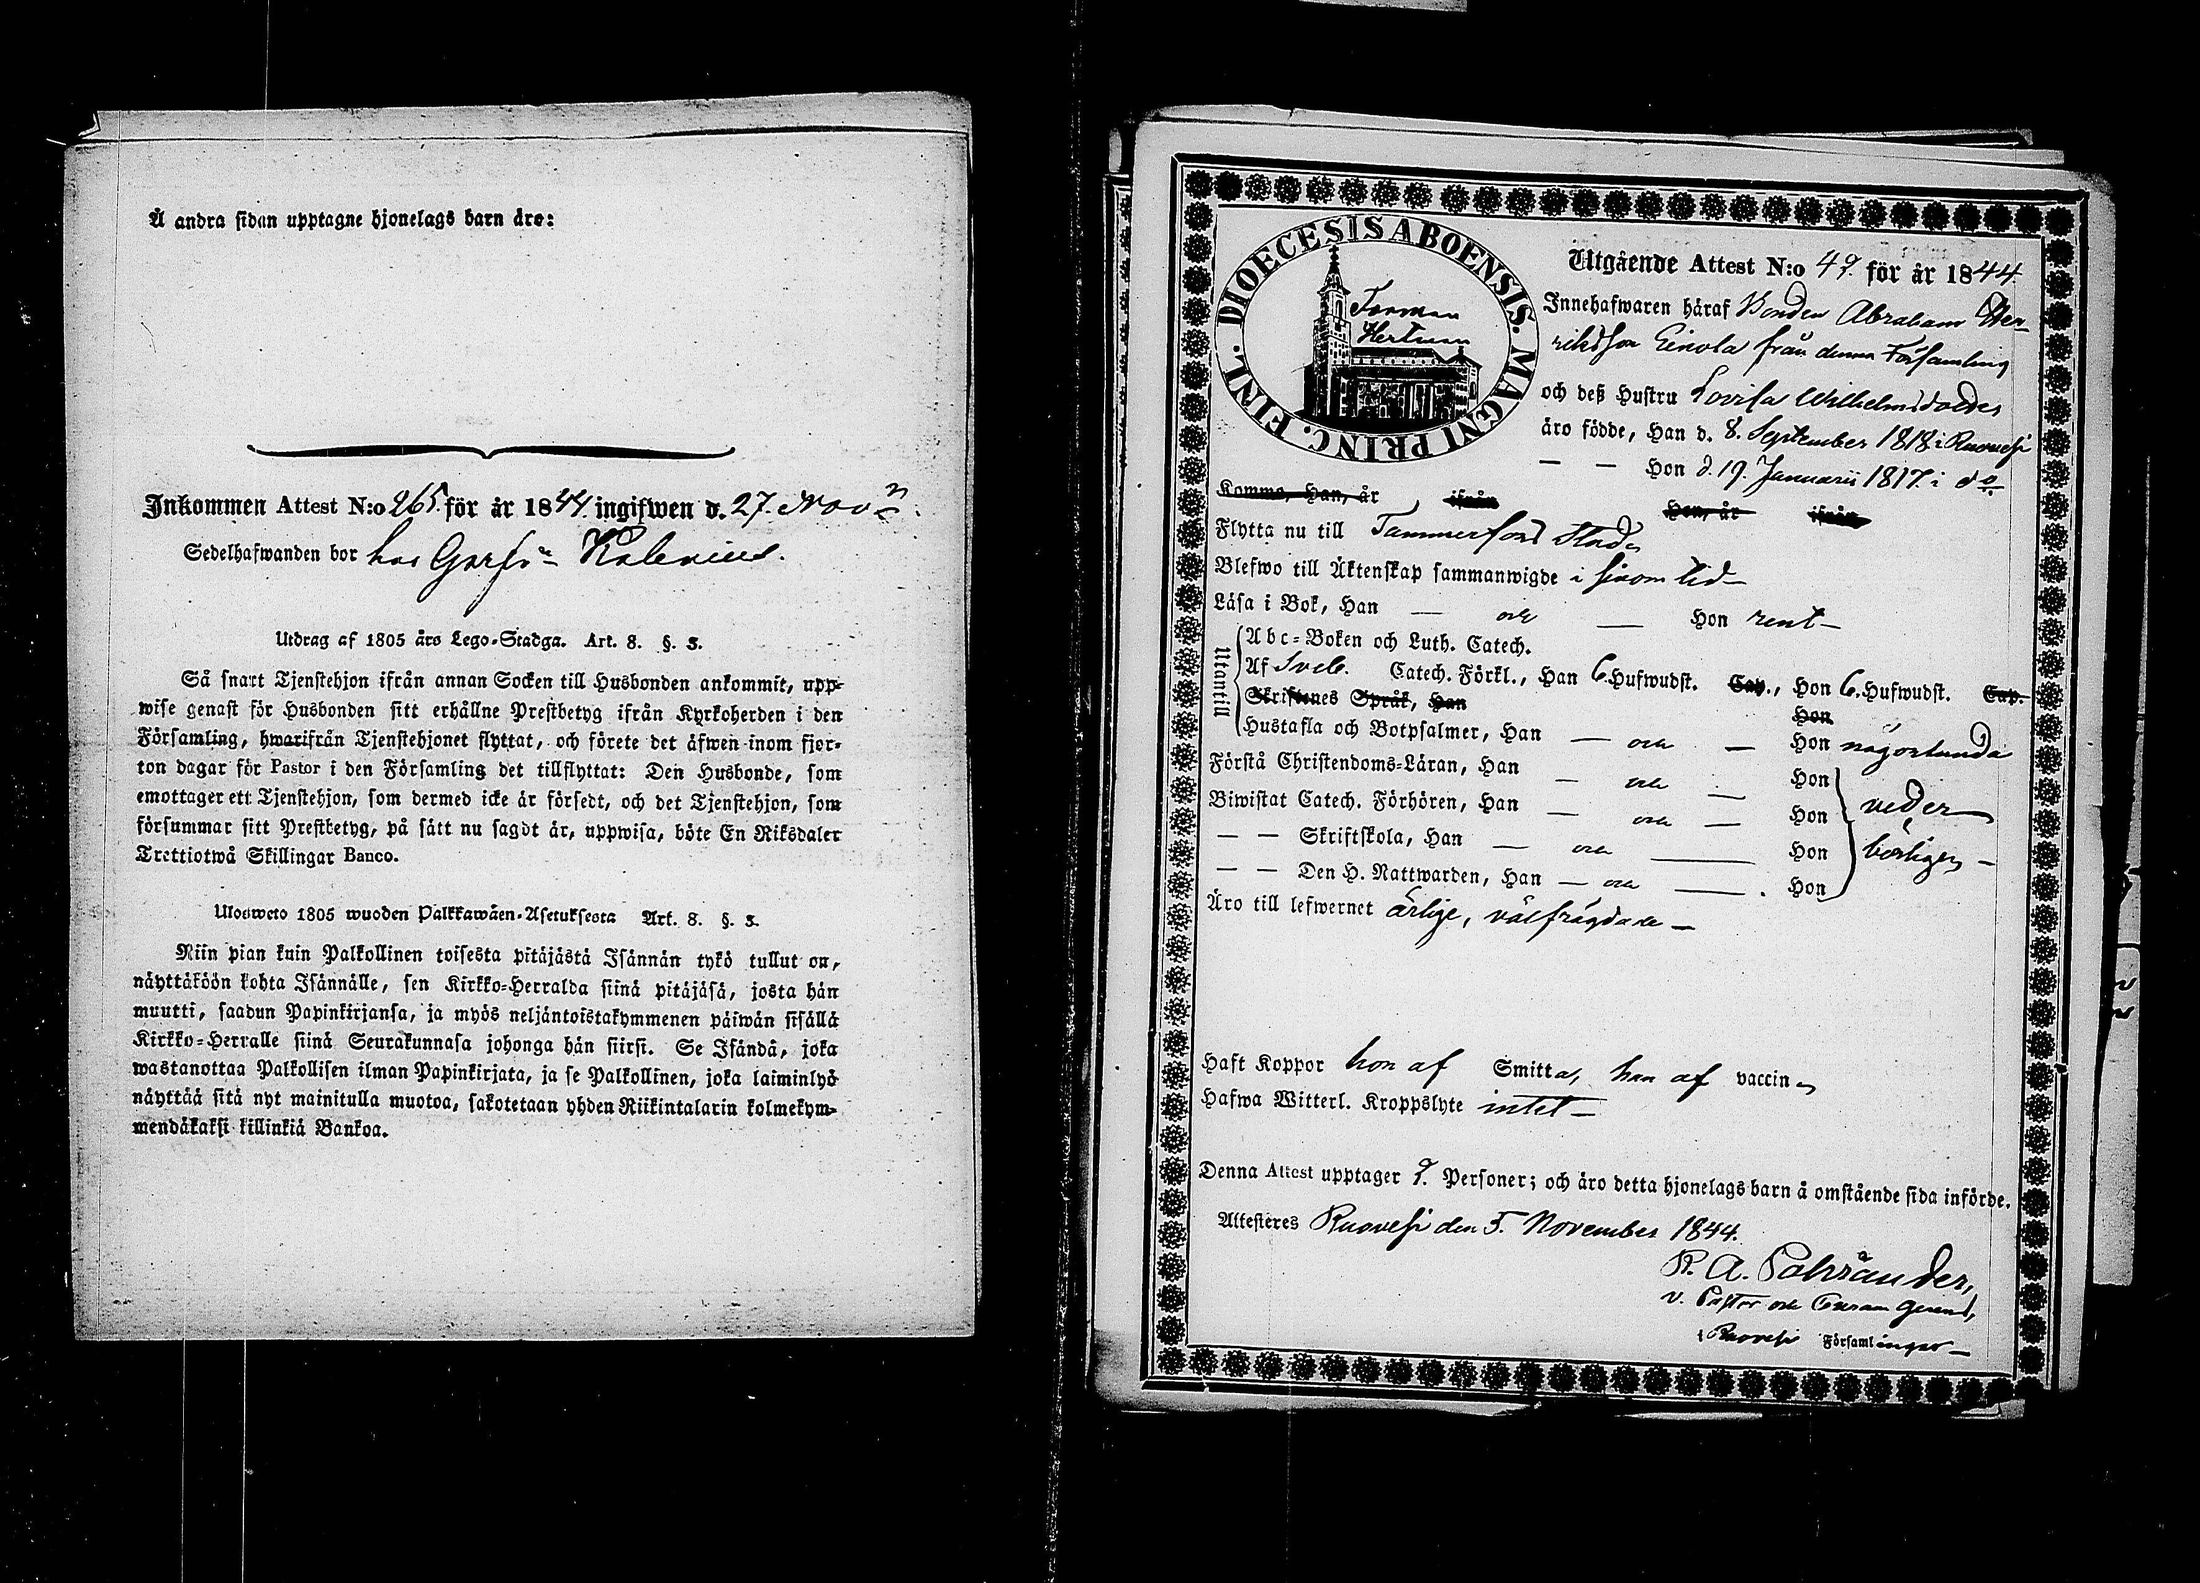 Å andra sidan upptagne hjonelags barn äro:
Inkommen Attest N:o 265. för år 1844. ingifwen d. 27. Nov.
Sedelhafwanden bor hos Garfv.
Utdrag af 1805 års Lego-Stadga. Art. 8. §. 3.
Så snart Tjenstehjon ifrån annan Socken till Husbonden ankommit, upp-
wise genast för Husbonden sitt erhållne Prestbetyg ifrån Kyrkoherden i den
Församling, hwarifrån Tjenstehjonet flyttat, och förete det äfwen inom fjor-
ton dagar för Pastor i den Församling det tillflyttat: Den Husbonde, som
emottager ett Tjenstehjon, som dermed icke är försedt, och det Tjenstehjon, som
försummar sitt Prestbetyg, på sätt nu sagdt är, uppwisa, böte En Riksdaler
Trettiotwå Skillingar Banco.
Ulosweto 1805 wuoden Palkkawäen-Asetuksesta Art. 8. §. 3.
Niin pian kuin Palkollinen toisesta pitäjästä Isännän tykö tullut on,
näyttäköön kohta Isännälle, sen Kirkko-Herralda siinä pitäjäsä, josta hän
muutti, saadun Papinkirjansa, ja myös neljäntoistakymmenen päiwän sisällä
Kirkko-Herralle siinä Seurakunnasa johonga hän siirsi. Se Isändä, joka
wastanottaa Palkollisen ilman Papinkirjata, ja se Palkollinen, joka laiminlyö
näyttää sitä nyt mainitulla muotoa, sakotetaan yhden Riikintalarin kolmekym-
mendäkaksi killinkiä Bankoa.
DIOECESIS ABOENSIS. MAGNI PRINC. FINL.
Utgående Attest N:o 49. för år 1844.
Innehafwaren häraf Bonden Abraham Hen-
riksson Einola från denna Församling
och deß Hustru Lovisa Wilhelmsdotter
äro födde, Han d. 8. September 1818 i Ruovesi
— — Hon d. 19. Januarii 1817. i do
Komma, Han, år ifrån Hon, år ifrån
Flytta nu till Tammerfors Stad
Blefwo till Äktenskap sammanwigde i sinom tid —
Läsa i Bok, Han — och — Hon rent —
Utantill
Abc-Boken och Luth. Catech.
Af Sveb. Catech. Förkl., Han 6. Hufwudst. Cap., Hon 6. Hufwudst. Cap.
Skriftenes Språk, Han Hon
Hustafla och Botpsalmer, Han — och — Hon någorlunda
Förstå Christendoms-Läran, Han — och — Hon
Biwistat Catech. Förhören, Han — och — Hon veder
— — Skriftskola, Han — och — Hon börligen —
— — Den H. Nattwarden, Han — och — . Hon
Äro till lefwernet ärlige, välfrägdade —
Haft Koppor hon af Smitta, han af vaccin
Hafwa Witterl. Kroppslyte intet —
Denna Attest upptager 2. Personer; och äro detta hjonelags barn å omstående sida införde.
Attesteres Ruovesi den 5. November 1844.
v. Pastor och
i Ruovesi Församlingar —